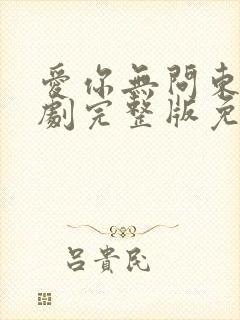 愛你無問東
劇完整版免
呂貴民